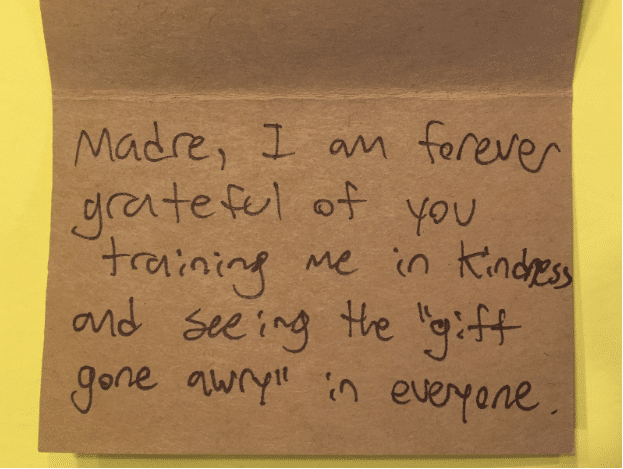 Madre, I am forever
grateful of you
training me in kindness
and seeing the "gift
gone awry" in everyone.